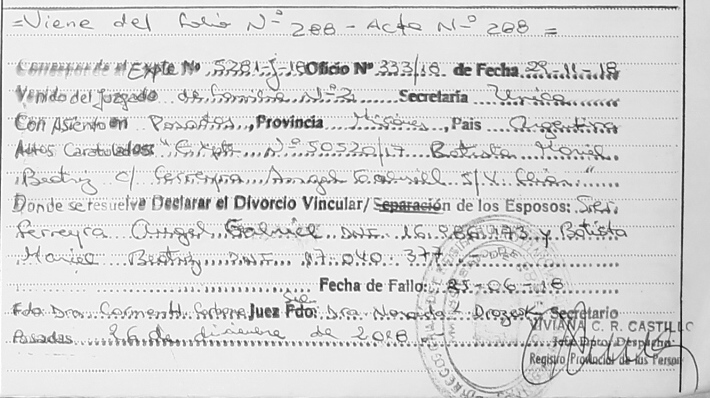 =Viene del folio Nº 288 - Acta Nº 288 =
Corresponde al Expte Nº 5281-J-18 Oficio Nº 333/18 de Fecha 29-11-18
Venido del Juzgado de familia Nº 2 Secretaría Única
Con Asiento en Posadas, Provincia Misiones, País Argentina
Autos Caratulados "Expte Nº 50520/17 Batista Mariel
Beatriz c/ Ferreyra Angel Gabriel s/
Donde se resuelve Declarar el Divorcio Vincular/Separación de los Esposos: Sres.
Ferreyra Angel Gabriel DNI. 16.986.173 y Batista
Mariel Beatriz DNI. 17.040.377
Fecha de Fallo: 25-06-18
Fdo. Dra. Carmen H. Juez Fdo: Dra. Secretario
Posadas 26 de diciembre de 2018
VIVIANA C. R. CASTILLO
Jefa Dpto. Despacho
Registro Provincial de las Person